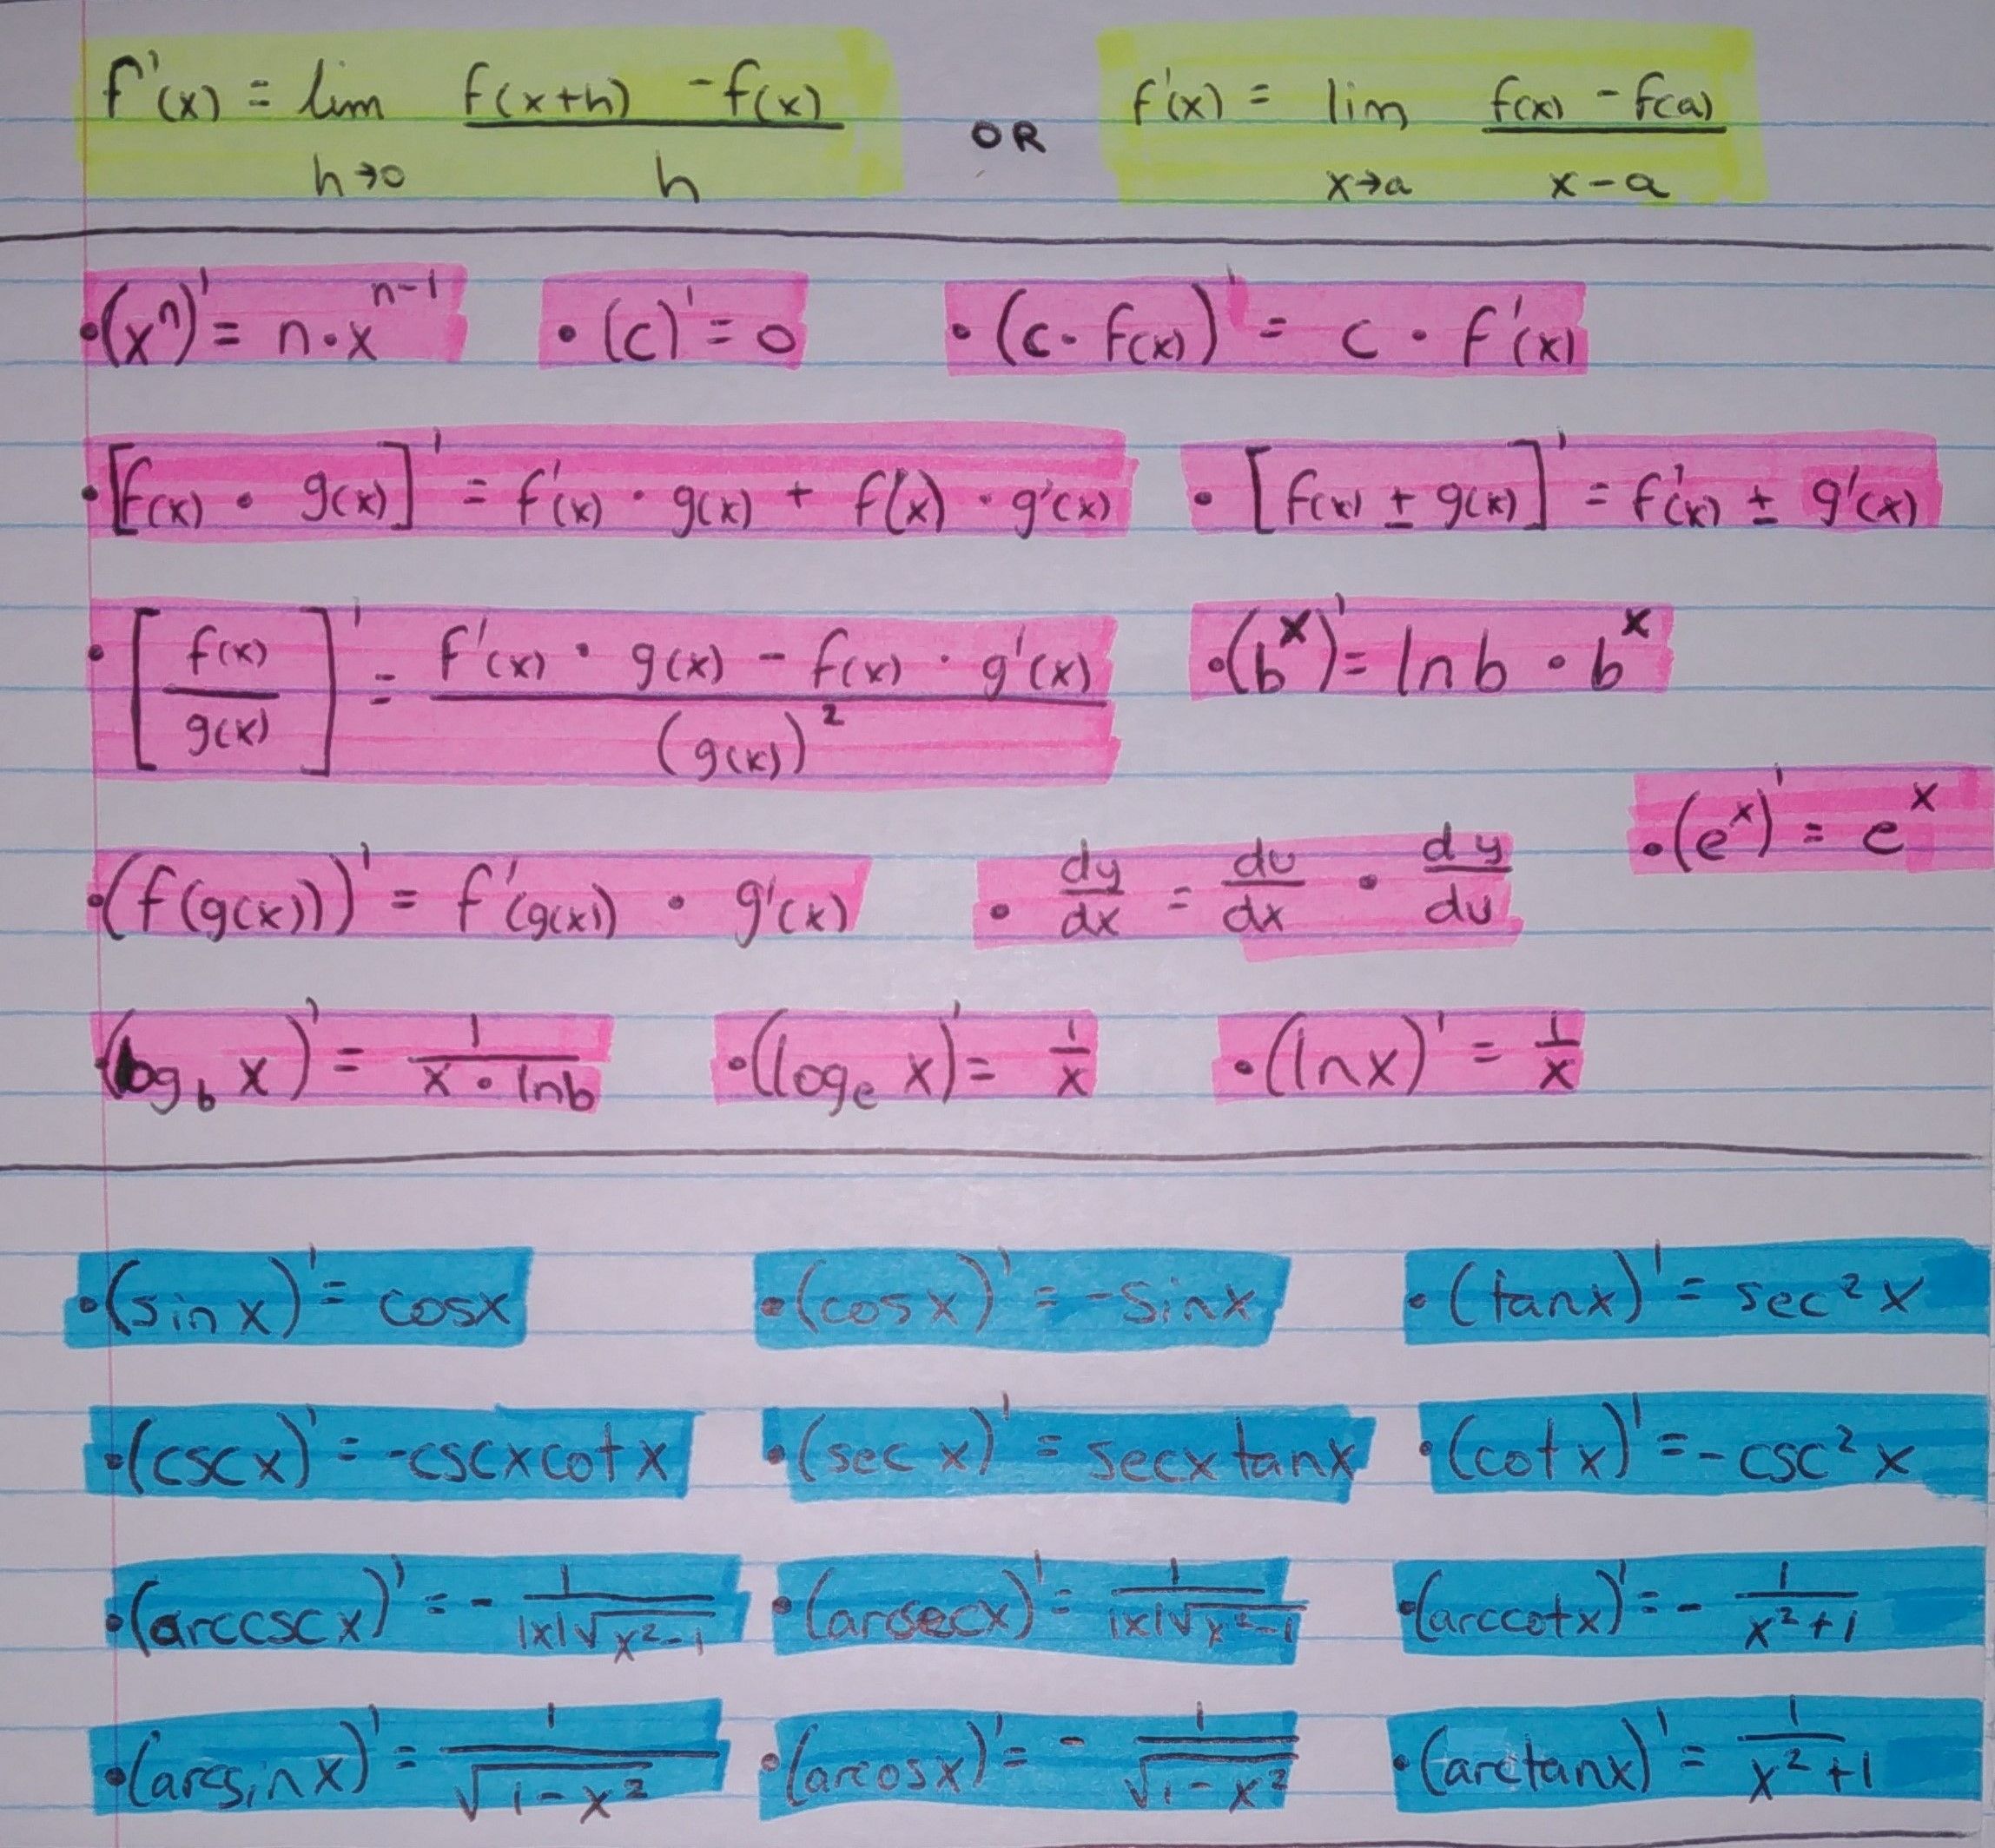 f'(x) = lim h→0 (f(x+h) - f(x))/h OR f'(x) = lim x→a (f(x) - f(a))/(x-a)
•(xⁿ)' = n•xⁿ⁻¹ •(c)' = 0 •(c•f(x))' = c•f'(x)
•[f(x) • g(x)]' = f'(x) • g(x) + f(x) • g'(x) •[f(x) ± g(x)]' = f'(x) ± g'(x)
•[f(x)/g(x)]' = (f'(x) • g(x) - f(x) • g'(x))/(g(x))² •(bˣ)' = ln b • bˣ
•(eˣ)' = eˣ
•(f(g(x)))' = f'(g(x)) • g'(x) • dy/dx = du/dx • dy/du
•(log_b x)' = 1/(x • lnb) •(log_e x)' = 1/x •(lnx)' = 1/x
•(sin x)' = cosx •(cosx)' = -sinx •(tanx)' = sec²x
•(cscx)' = -cscxcotx •(sec x)' = secxtanx •(cotx)' = -csc²x
•(arccscx)' = - 1/(|x|√(x²-1)) •(arcsecx)' = 1/(|x|√(x²-1)) •(arccotx)' = - 1/(x²+1)
•(arcsinx)' = 1/√(1-x²) •(arcosx)' = - 1/√(1-x²) •(arctanx)' = 1/(x²+1)